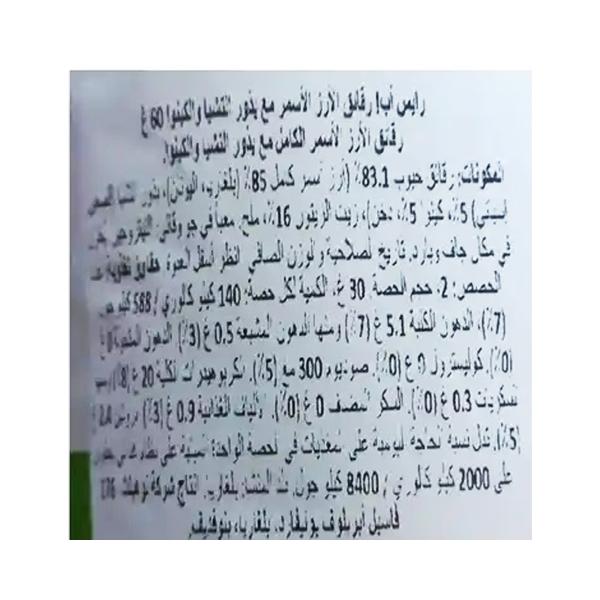 رايس أب! رقائق الأرز الأسمر مع بذور الشيا والكينوا 60 غ
رقائق الأرز الأسمر الكامل مع بذور الشيا والكينوا.
المكونات: رقائق حبوب 83.1٪ (أرز أسمر كامل 85٪ (بلغاريا، اليونان)، بذور الشيا
5٪، كينوا 5٪، دخن)، زيت الزيتون 16٪، ملح. معبأ في جو وقائي
في مكان جاف وبارد. تاريخ الصلاحية والوزن الصافي: انظر أسفل العبوة. حقائق تغذوية: عدد
الحصص: 2، حجم الحصة: 30 غ، الكمية لكل حصة: 140 كيلو كالوري / 588 كيلو جول
(7٪)، الدهون الكلية 5.1 غ (7٪) ومنها الدهون المشبعة 0.5 غ (3٪)، الدهون المتحولة 0 غ
(0٪)، كوليسترول 0 غ (0٪)، صوديوم 300 مغ (5٪)، الكربوهيدرات الكلية 20 غ (8٪)
السكريات 0.3 غ (0٪)، السكر المضاف 0 غ (0٪)، الألياف الغذائية 0.9 غ (3٪)، بروتين 2.4 غ
(5٪). تدل نسبة الحاجة اليومية على المغذيات في الحصة الواحدة المبنية على نظام غذائي يحتوي
على 2000 كيلو كالوري / 8400 كيلو جول. بلد المنشأ: بلغاريا. انتاج شركة 176
فاسيل ابريلوف بوليفارد، بلغاريا، بلوفديف.